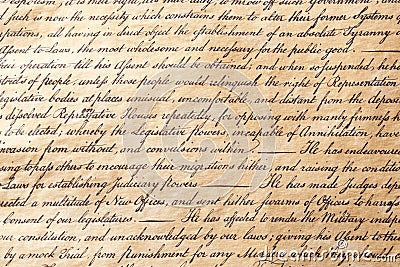 Despotism, it is their right, it is their duty, to throw off such Government, and
Such is now the necessity which constrains them to alter their former Systems of
rpations, all having in direct object the establishment of an absolute Tyranny o
Assent to Laws, the most wholesome and necessary for the public good.
their operation till his Assent should be obtained; and when so suspended, he he
stricts of people, unless those people would relinquish the right of Representation
egislative bodies at places unusual, uncomfortable, and distant from the deposi
s dissolved Representative Houses repeatedly, for opposing with manly firmness h
to be elected; whereby the Legislative powers, incapable of Annihilation, have
invasion from without, and convulsions within. — He has endeavoured
sing to pass others to encourage their migrations hither, and raising the conditi
Laws for establishing Judiciary powers. — He has made Judges dep
rected a multitude of New Offices, and sent hither swarms of Officers to harass
Consent of our legislatures. — He has affected to render the Military indep
our constitution, and unacknowledged by our laws; giving his Assent to th
by a mock Trial, from punishment for any Mu
dreamstime